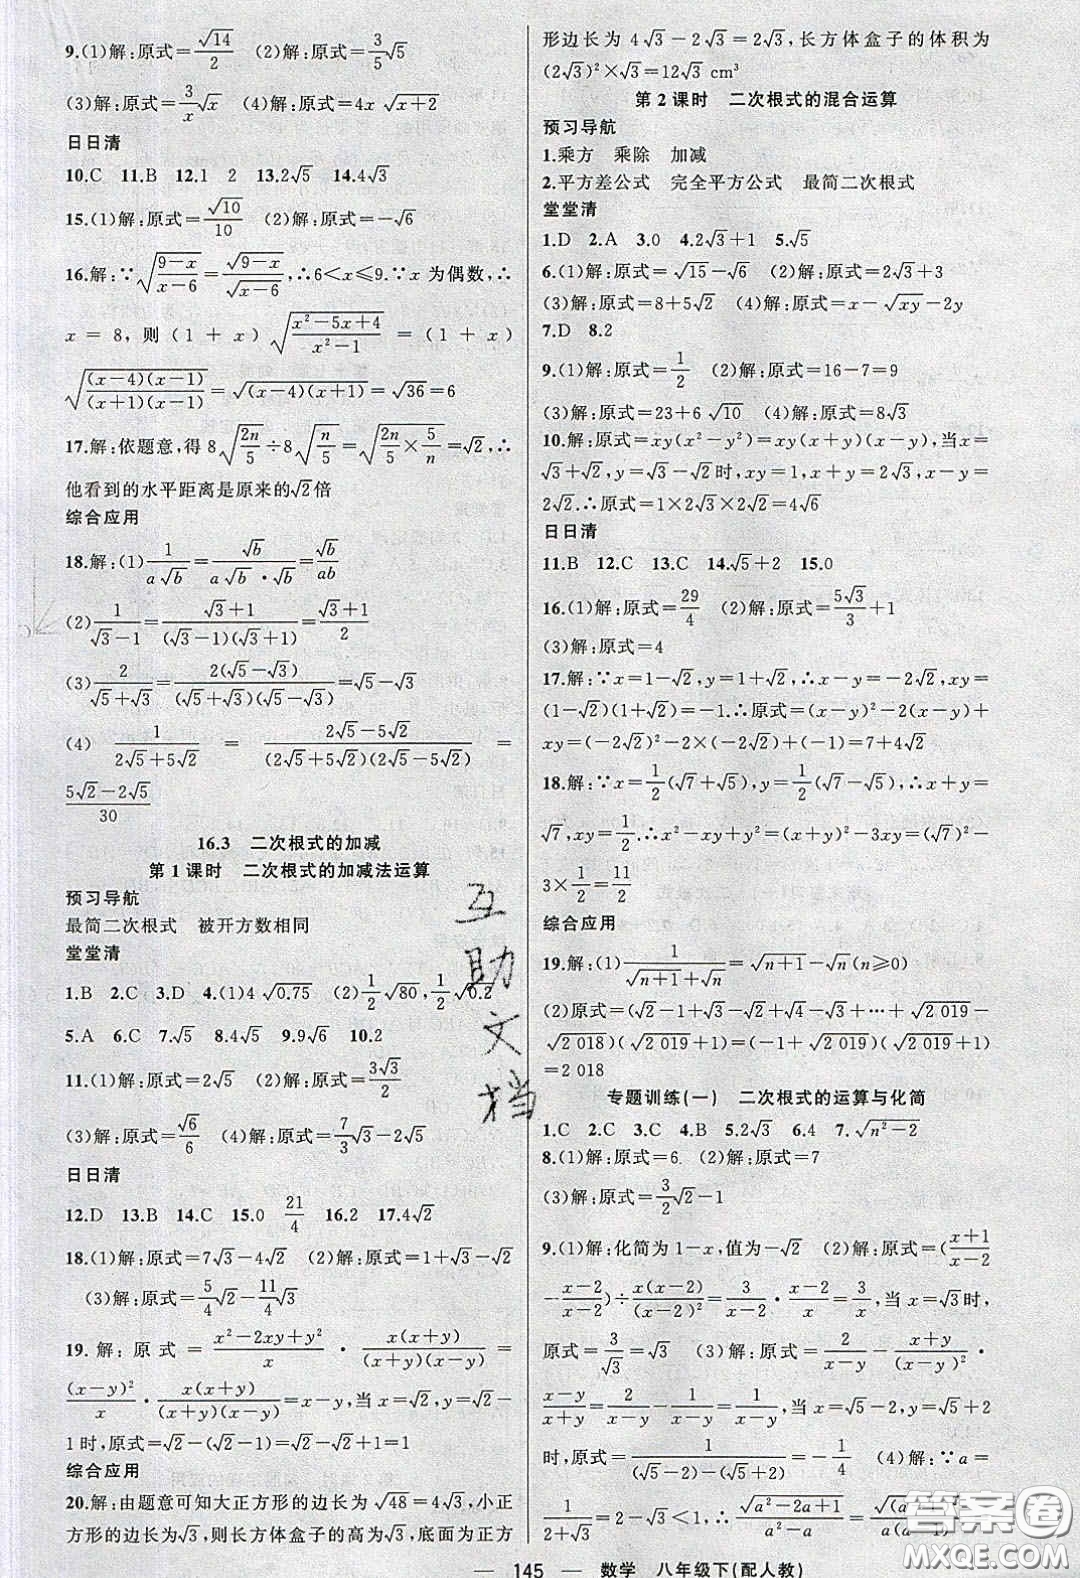 9.(1)解:原式=√14/2 (2)解:原式=3/5√5
(3)解:原式=3/x√x (4)解:原式=4x√(x+2)
日日清
10.C 11.B 12.1 2 13.2√5 14.4√3
15.(1)解:原式=√10/10 (2)解:原式=-√6
16.解:∵√((9-x)/(x-6))=√(9-x)/√(x-6),∴6<x≤9.∵x为偶数,∴
x=8,则(1+x)√((x²-5x+4)/(x²-1))=(1+x)
√((x-4)(x-1)/((x+1)(x-1)))=√((x-4)(x+1))=√36=6
17.解:依题意,得8√(2n/5)÷8√(n/5)=√(2n/5×5/n)=√2,∴
他看到的水平距离是原来的√2倍
综合应用
18.解:(1)1/(a√b)=√b/(a√b·√b)=√b/(ab)
(2)1/(√3-1)=(√3+1)/((√3-1)(√3+1))=(√3+1)/2
(3)2/(√5+√3)=2(√5-√3)/((√5+√3)(√5-√3))=√5-√3
(4)1/(2√5+5√2)=(2√5-5√2)/((2√5+5√2)(2√5-5√2))=
(5√2-2√5)/30
16.3 二次根式的加减
第1课时 二次根式的加减法运算
预习导航
最简二次根式 被开方数相同
堂堂清
1.B 2.C 3.D 4.(1)4√0.75 (2)1/2√80,1/2√0.2
5.A 6.C 7.√5 8.4√5 9.9√6 10.2
11.(1)解:原式=2√5 (2)解:原式=3√3/2
(3)解:原式=√6/6 (4)解:原式=7/3√3-2√5
日日清
12.D 13.B 14.C 15.0 21/4 16.2 17.4√2
18.(1)解:原式=7√3-4√2 (2)解:原式=1+√3-√2
(3)解:原式=5/4√2-11/4√3
19.解:原式=(x²-2xy+y²)/x·x(x+y)/((x+y)(x-y))=
(x-y)²/x·x(x+y)/((x+y)(x-y))=x-y,当x=√2,y=√2-
1时,原式=√2-(√2-1)=√2-√2+1=1
综合应用
20.解:由题意可知大正方形的边长为√48=4√3,小正
方形的边长为√3,则长方体盒子的高为√3,底面为正方
形边长为4√3-2√3=2√3,长方体盒子的体积为
(2√3)²×√3=12√3 cm³
第2课时 二次根式的混合运算
预习导航
1.乘方 乘除 加减
2.平方差公式 完全平方公式 最简二次根式
堂堂清
1.D 2.A 3.0 4.2√3+1 5.√5
6.(1)解:原式=√15-√6 (2)解:原式=2√3+3
(3)解:原式=8+5√2 (4)解:原式=x-√xy-2y
7.D 8.2
9.(1)解:原式=1/2 (2)解:原式=16-7=9
(3)解:原式=23+6√10 (4)解:原式=8√3
10.解:原式=xy(x²-y²)=xy(x+y)(x-y),当x=
√3+√2,y=√3-√2时,xy=1,x+y=2√3,x-y=
2√2.∴原式=1×2√3×2√2=4√6
日日清
11.B 12.C 13.C 14.√5+2 15.0
16.(1)解:原式=29/4 (2)解:原式=5√3/3+1
(3)解:原式=4
17.解:∵x=1-√2,y=1+√2,∴x-y=-2√2,xy=
(1-√2)(1+√2)=-1.∴原式=(x-y)²-2(x-y)+
xy=(-2√2)²-2×(-2√2)+(-1)=7+4√2
18.解:∵x=1/2(√7+√5),y=1/2(√7-√5),∴x+y=
√7,xy=1/2.∴x²-xy+y²=(x+y)²-3xy=(√7)²-
3×1/2=11/2
综合应用
19.解:(1)1/(√(n+1)+√n)=√(n+1)-√n(n≥0)
(2)原式=(√2-1+√3-√2+√4-√3+…+√2 019-
√2 018)(√2 019+1)=(-1+√2 019)(√2 019+1)
=2 018
专题训练(一) 二次根式的运算与化简
1.C 2.C 3.C 4.B 5.2√3 6.4 7.√(n²-2)
8.(1)解:原式=6 (2)解:原式=7
(3)解:原式=3/2√2-1
9.(1)解:化简为1-x,值为-√2 (2)解:原式=((x+1)/(x-2)
-(x-2)/(x-2))÷x(x-2)/(x-2)²=3/(x-2)·(x-2)/x=3/x,当x=√3时,
原式=3/√3=√3 (3)解:原式=2/(x-y)-(x+y)/(x-y)²·
(x-y)/(x+y)=2/(x-y)-1/(x-y)=1/(x-y),当x=√5-2,y=√5+2
时,原式=1/((√5-2)-(√5+2))=-1/4 (4)解:∵a=
1/(2+√3)=2-√3<1,∴√(a²-2a+1)/(a²-a)=
145 — 数学 八年级下(配人教)
互
助
文
档
答案圈
MXQE.COM